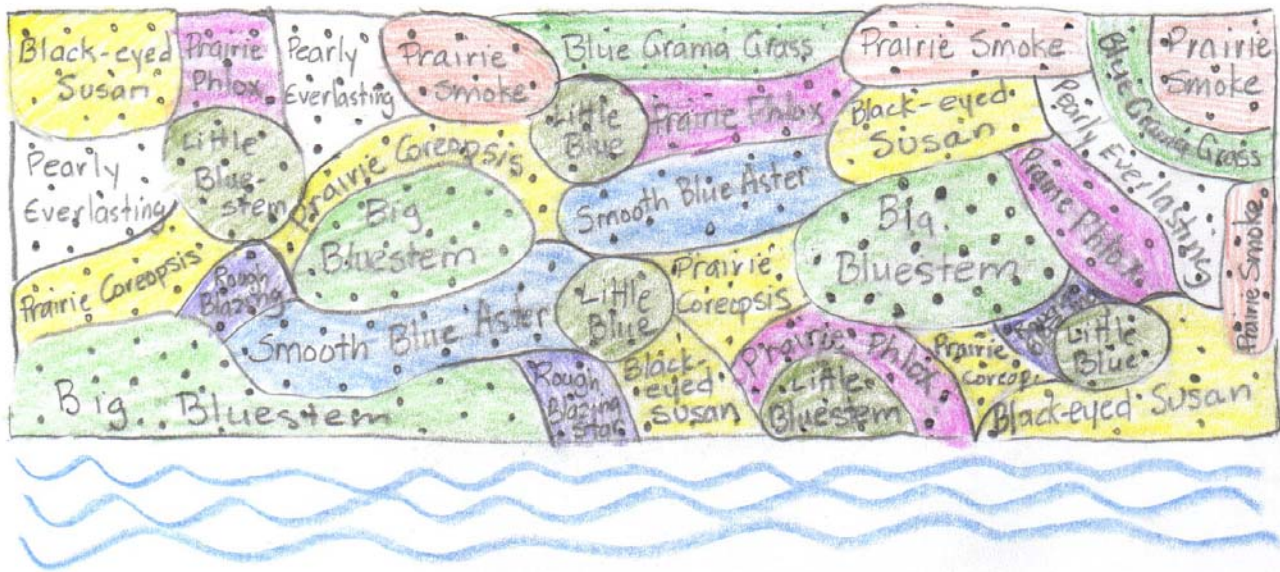 Black-eyed
Susan
Prairie
Phlox
Pearly
Everlasting
Prairie
Smoke
Blue Grama Grass
Prairie Smoke
Blue Grama Grass
Prairie
Smoke
Pearly
Everlasting
Little
Blue-
stem
Prairie Coreopsis
Little
Blue
Prairie Phlox
Black-eyed
Susan
Pearly Everlasting
Big
Bluestem
Smooth Blue Aster
Big
Bluestem
Prairie Phlox
Prairie Smoke
Prairie Coreopsis
Rough
Blazing
Smooth Blue Aster
Little
Blue
Prairie
Coreopsis
Little
Blue
Big Bluestem
Rough
Blazing
Star
Black-
eyed
Susan
Prairie Phlox
Little
Bluestem
Prairie
Coreop
Black-eyed Susan